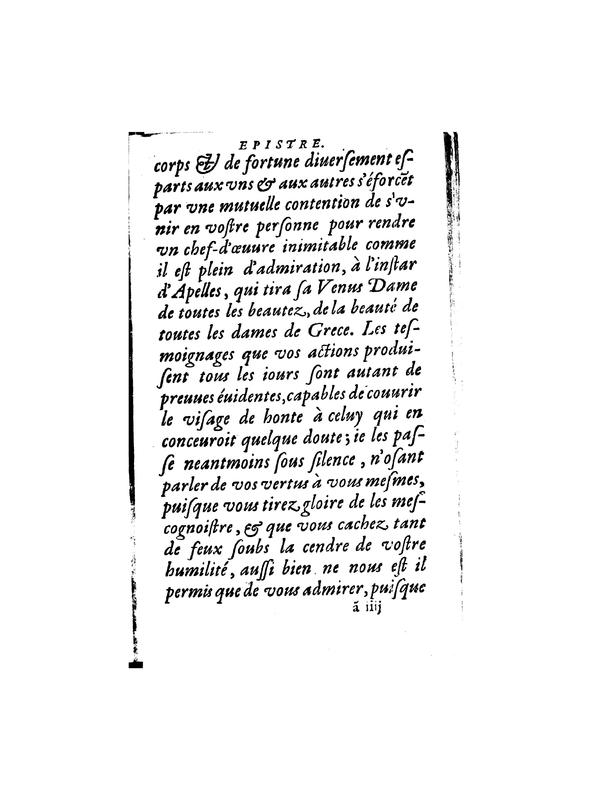 EPISTRE.
corps & de fortune diuersement es-
parts aux vns & aux autres s'éforcẽt
par vne mutuelle contention de s'v-
nir en vostre personne pour rendre
vn chef-d'œuure inimitable comme
il est plein d'admiration, à l'instar
d'Apelles, qui tira sa Venus Dame
de toutes les beautez, de la beauté de
toutes les dames de Grece. Les tes-
moignages que vos actions produi-
sent tous les iours sont autant de
preuues éuidentes, capables de couurir
le visage de honte à celuy qui en
conceuroit quelque doute; ie les pas-
se neantmoins sous silence, n'osant
parler de vos vertus à vous mesmes,
puisque vous tirez gloire de les mes-
cognoistre, & que vous cachez tant
de feux soubs la cendre de vostre
humilité, aussi bien ne nous est il
permis que de vous admirer, puisque
ã iiij